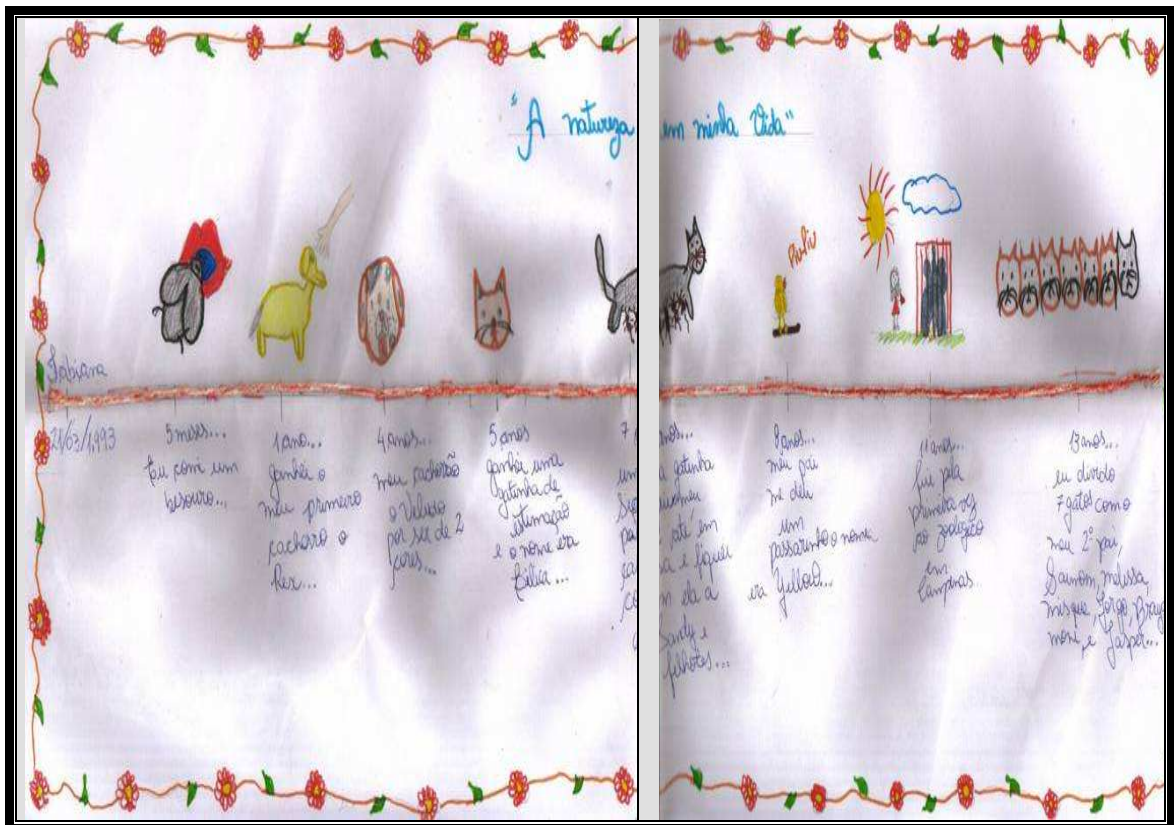 "A natureza em minha Vida"
Piu Piu
Fabiana
21/03/1993
5 meses...
Eu comi um
besouro...
1 ano...
ganhei o
meu primeiro
cachorro o
Rex...
4 anos...
meu cachorrão
o Veludo
por ser de 2
cores...
5 anos
ganhei uma
gatinha de
estimação
e o nome era
Bilica...
7 anos...
gatinha
até em
e fiquei
ela a
Sandy e
filhotes...
8 anos...
meu pai
me deu
um
passarinho o nome
era Yellow...
11 anos...
fui pela
primeira vez
ao zoológico
em
Campinas
13 anos...
eu divido
7 gatos com o
meu 2º pai,
melissa,
e Jasper...